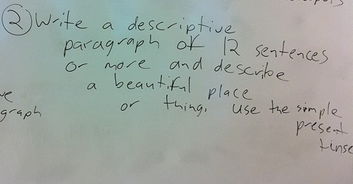 ② Write a descriptive
paragraph of 12 sentences
or more and describe
a beautiful place
or thing. Use the simple
graph
present
tinse